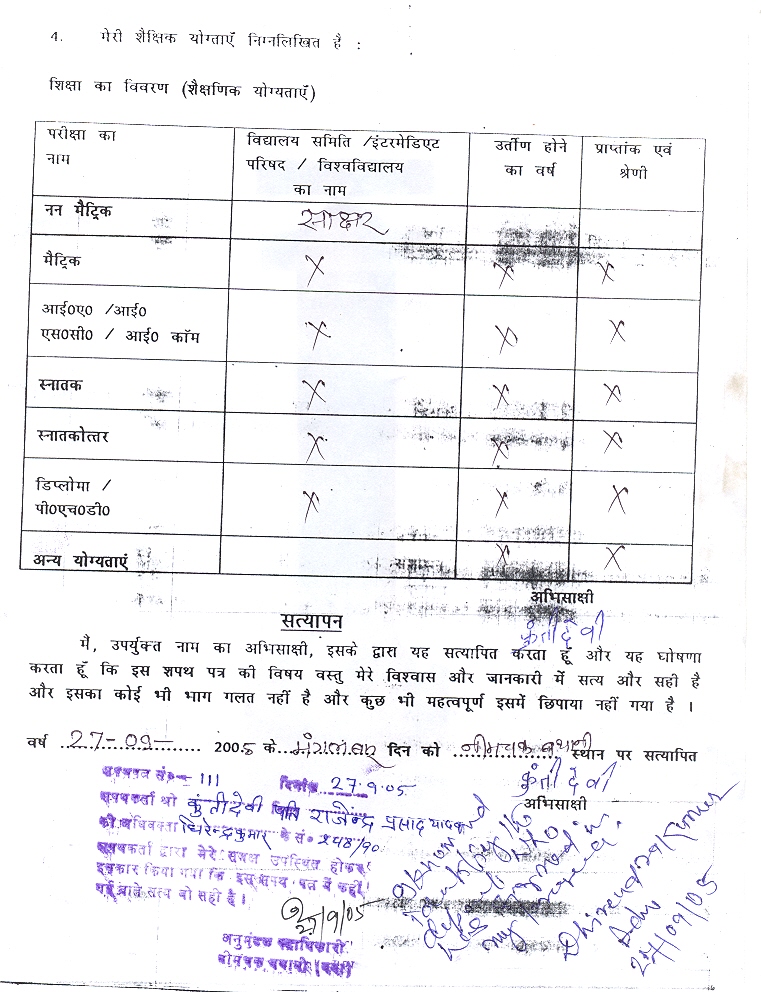 4. मेरी शैक्षिक योग्ताएँ निम्नलिखित है :
शिक्षा का विवरण (शैक्षणिक योग्यताएँ)
परीक्षा का नाम
विद्यालय समिति /इंटरमेडिएट परिषद / विश्वविद्यालय का नाम
उर्तीण होने का वर्ष
प्राप्तांक एवं श्रेणी
नन मैट्रिक साक्षर
मैट्रिक X X X
आई0ए0 /आई0
एस0सी0 / आई0 कॉम X X X
स्नातक X X X
स्नातकोत्तर X X X
डिप्लोमा /
पी0एच0डी0 X X X
अन्य योग्यताएं X X
अभिसाक्षी
कुंती देवी
सत्यापन
मै, उपर्युक्त नाम का अभिसाक्षी, इसके द्वारा यह सत्यापित करता हूँ और यह घोषणा
करता हूँ कि इस शपथ पत्र की विषय वस्तु मेरे विश्वास और जानकारी में सत्य और सही है
और इसका कोई भी भाग गलत नहीं है और कुछ भी महत्वपूर्ण इसमें छिपाया नहीं गया है ।
वर्ष 27-09- 2005 के मंगलवार दिन को नीमचक बथानी स्थान पर सत्यापित
कुंती देवी
अभिसाक्षी
सं० 111 दिनांक 27.9.05
शपथकर्ता श्री कुंती देवी पति राजेन्द्र प्रसाद यादव
की अधिवक्ता धिरेन्द्र कुमार के सं० 248/90
शपथकर्ता द्वारा मेरे समक्ष उपस्थित होकर
इकरार किया गया कि इस शपथ पत्र में कही
गई बातें सत्य वो सही है ।
27/9/05
अनुमंडल पदाधिकारी
नीमचक बथानी (गया)
deponent who
has signed in
my presence.
Dhirendra Kumar
Adv
27/09/05